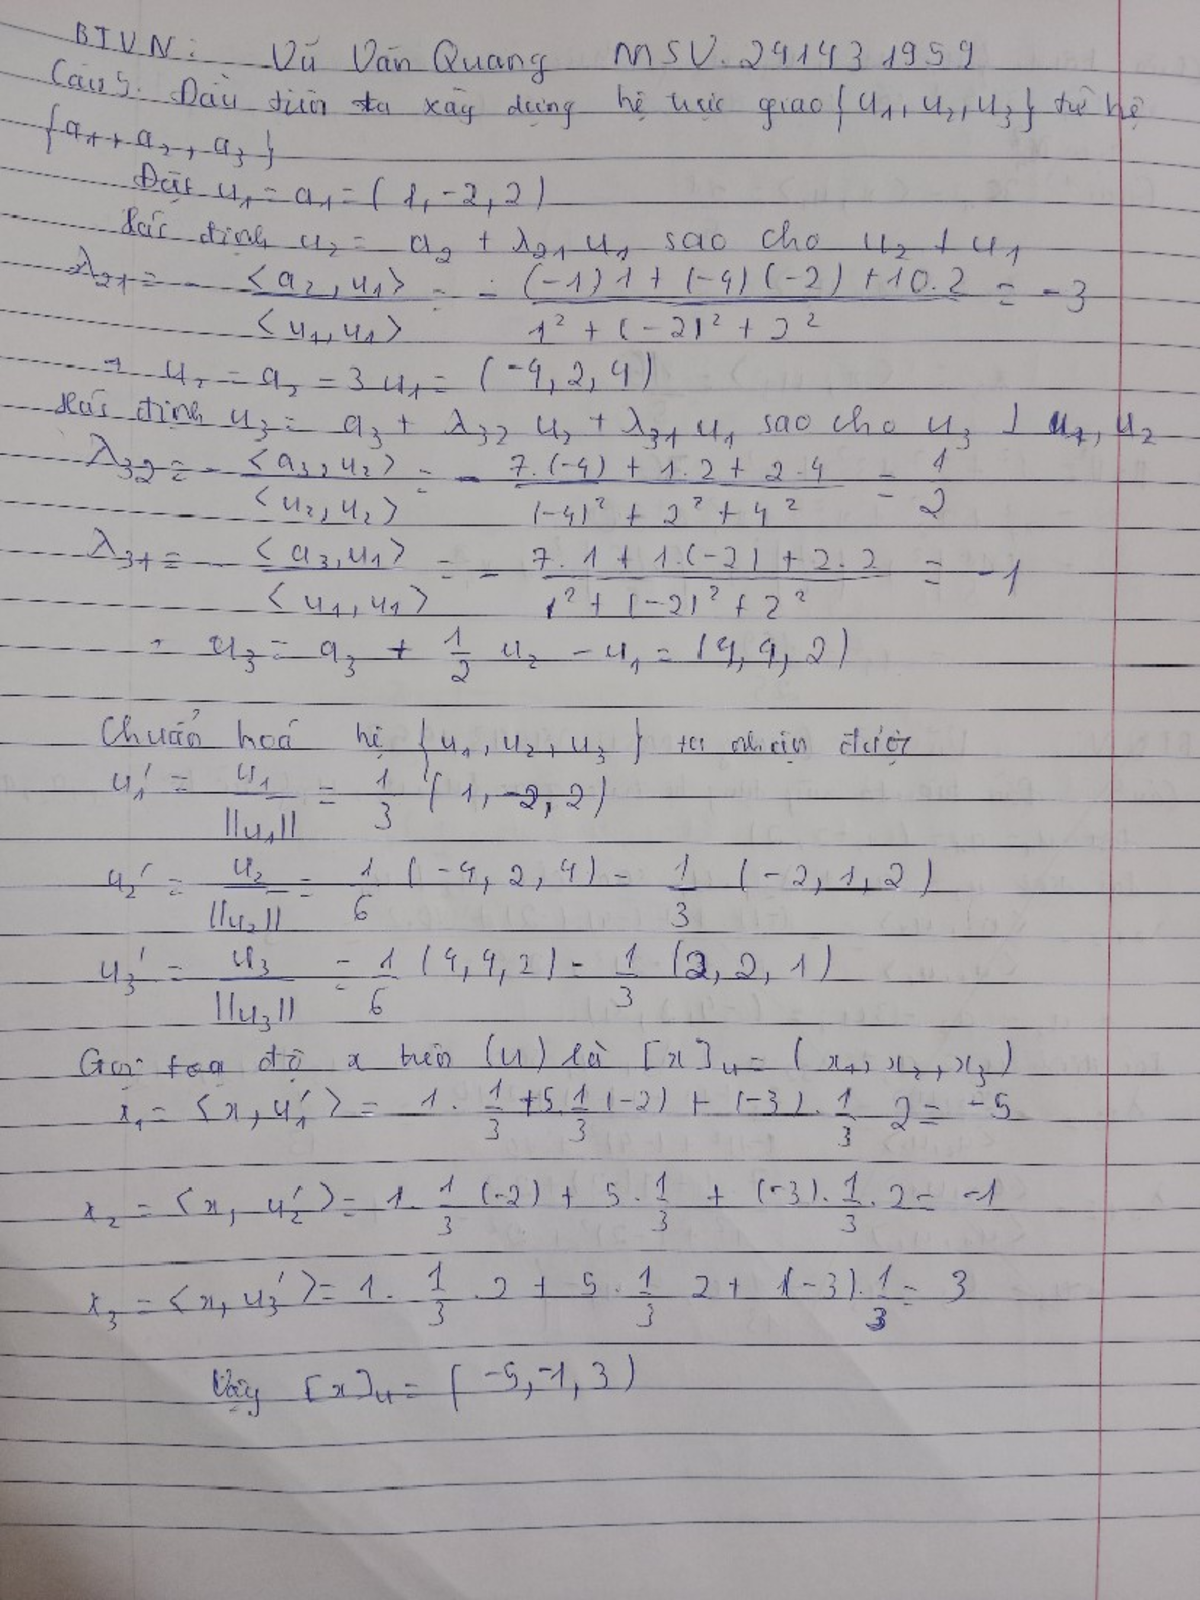 BTVN: Vũ Văn Quang MSV. 241431959
Câu 5. Đầu tiên ta xây dựng hệ trực giao {u₁, u₂, u₃} từ hệ
{a₁, a₂, a₃}
Đặt u₁ = a₁ = (1, -2, 2)
Xác định u₂ = a₂ + λ₂₁ u₁ sao cho u₂ ⊥ u₁
λ₂₁ = - <a₂, u₁> / <u₁, u₁> = - ((-1)1 + (-4)(-2) + 10.2) / (1² + (-2)² + 2²) = -3
→ u₂ = a₂ - 3u₁ = (-4, 2, 4)
Xác định u₃ = a₃ + λ₃₂ u₂ + λ₃₁ u₁ sao cho u₃ ⊥ u₁, u₂
λ₃₂ = - <a₃, u₂> / <u₂, u₂> = - (7.(-4) + 1.2 + 2.4) / ((-4)² + 2² + 4²) = 1/2
λ₃₁ = - <a₃, u₁> / <u₁, u₁> = - (7.1 + 1.(-2) + 2.2) / (1² + (-2)² + 2²) = -1
= u₃ = a₃ + 1/2 u₂ - u₁ = (4, 4, 2)
Chuẩn hoá hệ {u₁, u₂, u₃} ta nhận được
u₁' = u₁ / ||u₁|| = 1/3 (1, -2, 2)
u₂' = u₂ / ||u₂|| = 1/6 (-4, 2, 4) = 1/3 (-2, 1, 2)
u₃' = u₃ / ||u₃|| = 1/6 (4, 4, 2) = 1/3 (2, 2, 1)
Gọi toạ độ x trên (u) là [x]ᵤ = (x₁, x₂, x₃)
x₁ = <x, u₁'> = 1. 1/3 + 5. 1/3 (-2) + (-3). 1/3 2 = -5
x₂ = <x, u₂'> = 1. 1/3 (-2) + 5. 1/3 + (-3). 1/3 . 2 = -1
x₃ = <x, u₃'> = 1. 1/3 .2 + 5. 1/3 2 + (-3). 1/3 = 3
Vậy [x]ᵤ = (-5, -1, 3)